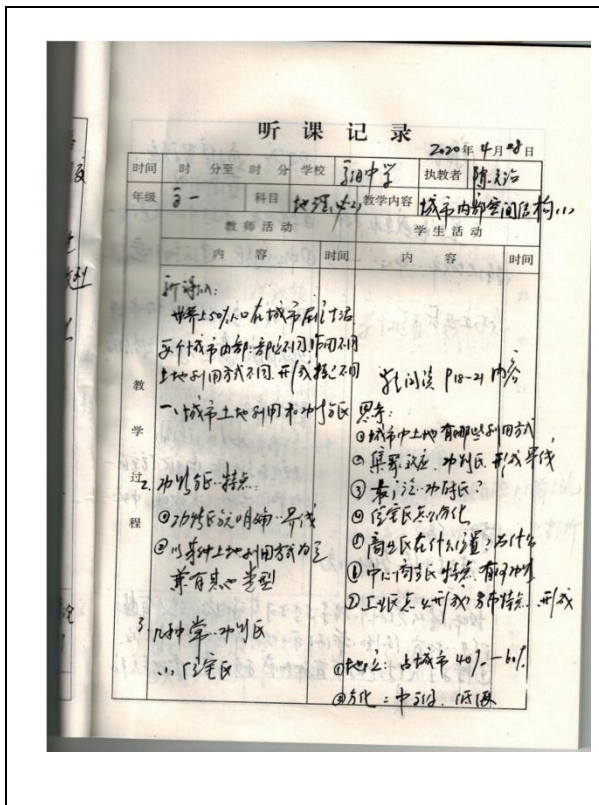 听课记录
2020年4月28日
时间 时 分至 时 分 学校 中学 执教者 陈
年级 高一 科目 地理(必2) 教学内容 城市内部空间结构(1)
教师活动 学生活动
内容 时间 内容 时间
教学过程
新课:
世界上50%人口在城市居住生活
每个城市内部:部位不同,作用不同
土地利用方式不同,形成特色不同
一、城市土地利用和功能区
2.功能区特点:
①功能区没明确界线
②以某种土地利用方式为主
兼有其他类型
3.几种常见功能区
(1)住宅区
学生阅读 P18-21 内容
思考:
①城市中土地有哪些利用方式
②集聚效应,功能区形成界线
③ 功能区?
④住宅区怎么分化
⑤商业区在什么位置?为什么
⑥中心商务区特点,有何功能
⑦工业区怎么形成?有啥特点
①地位:占城市40%—60%
②分化:中高级、低级